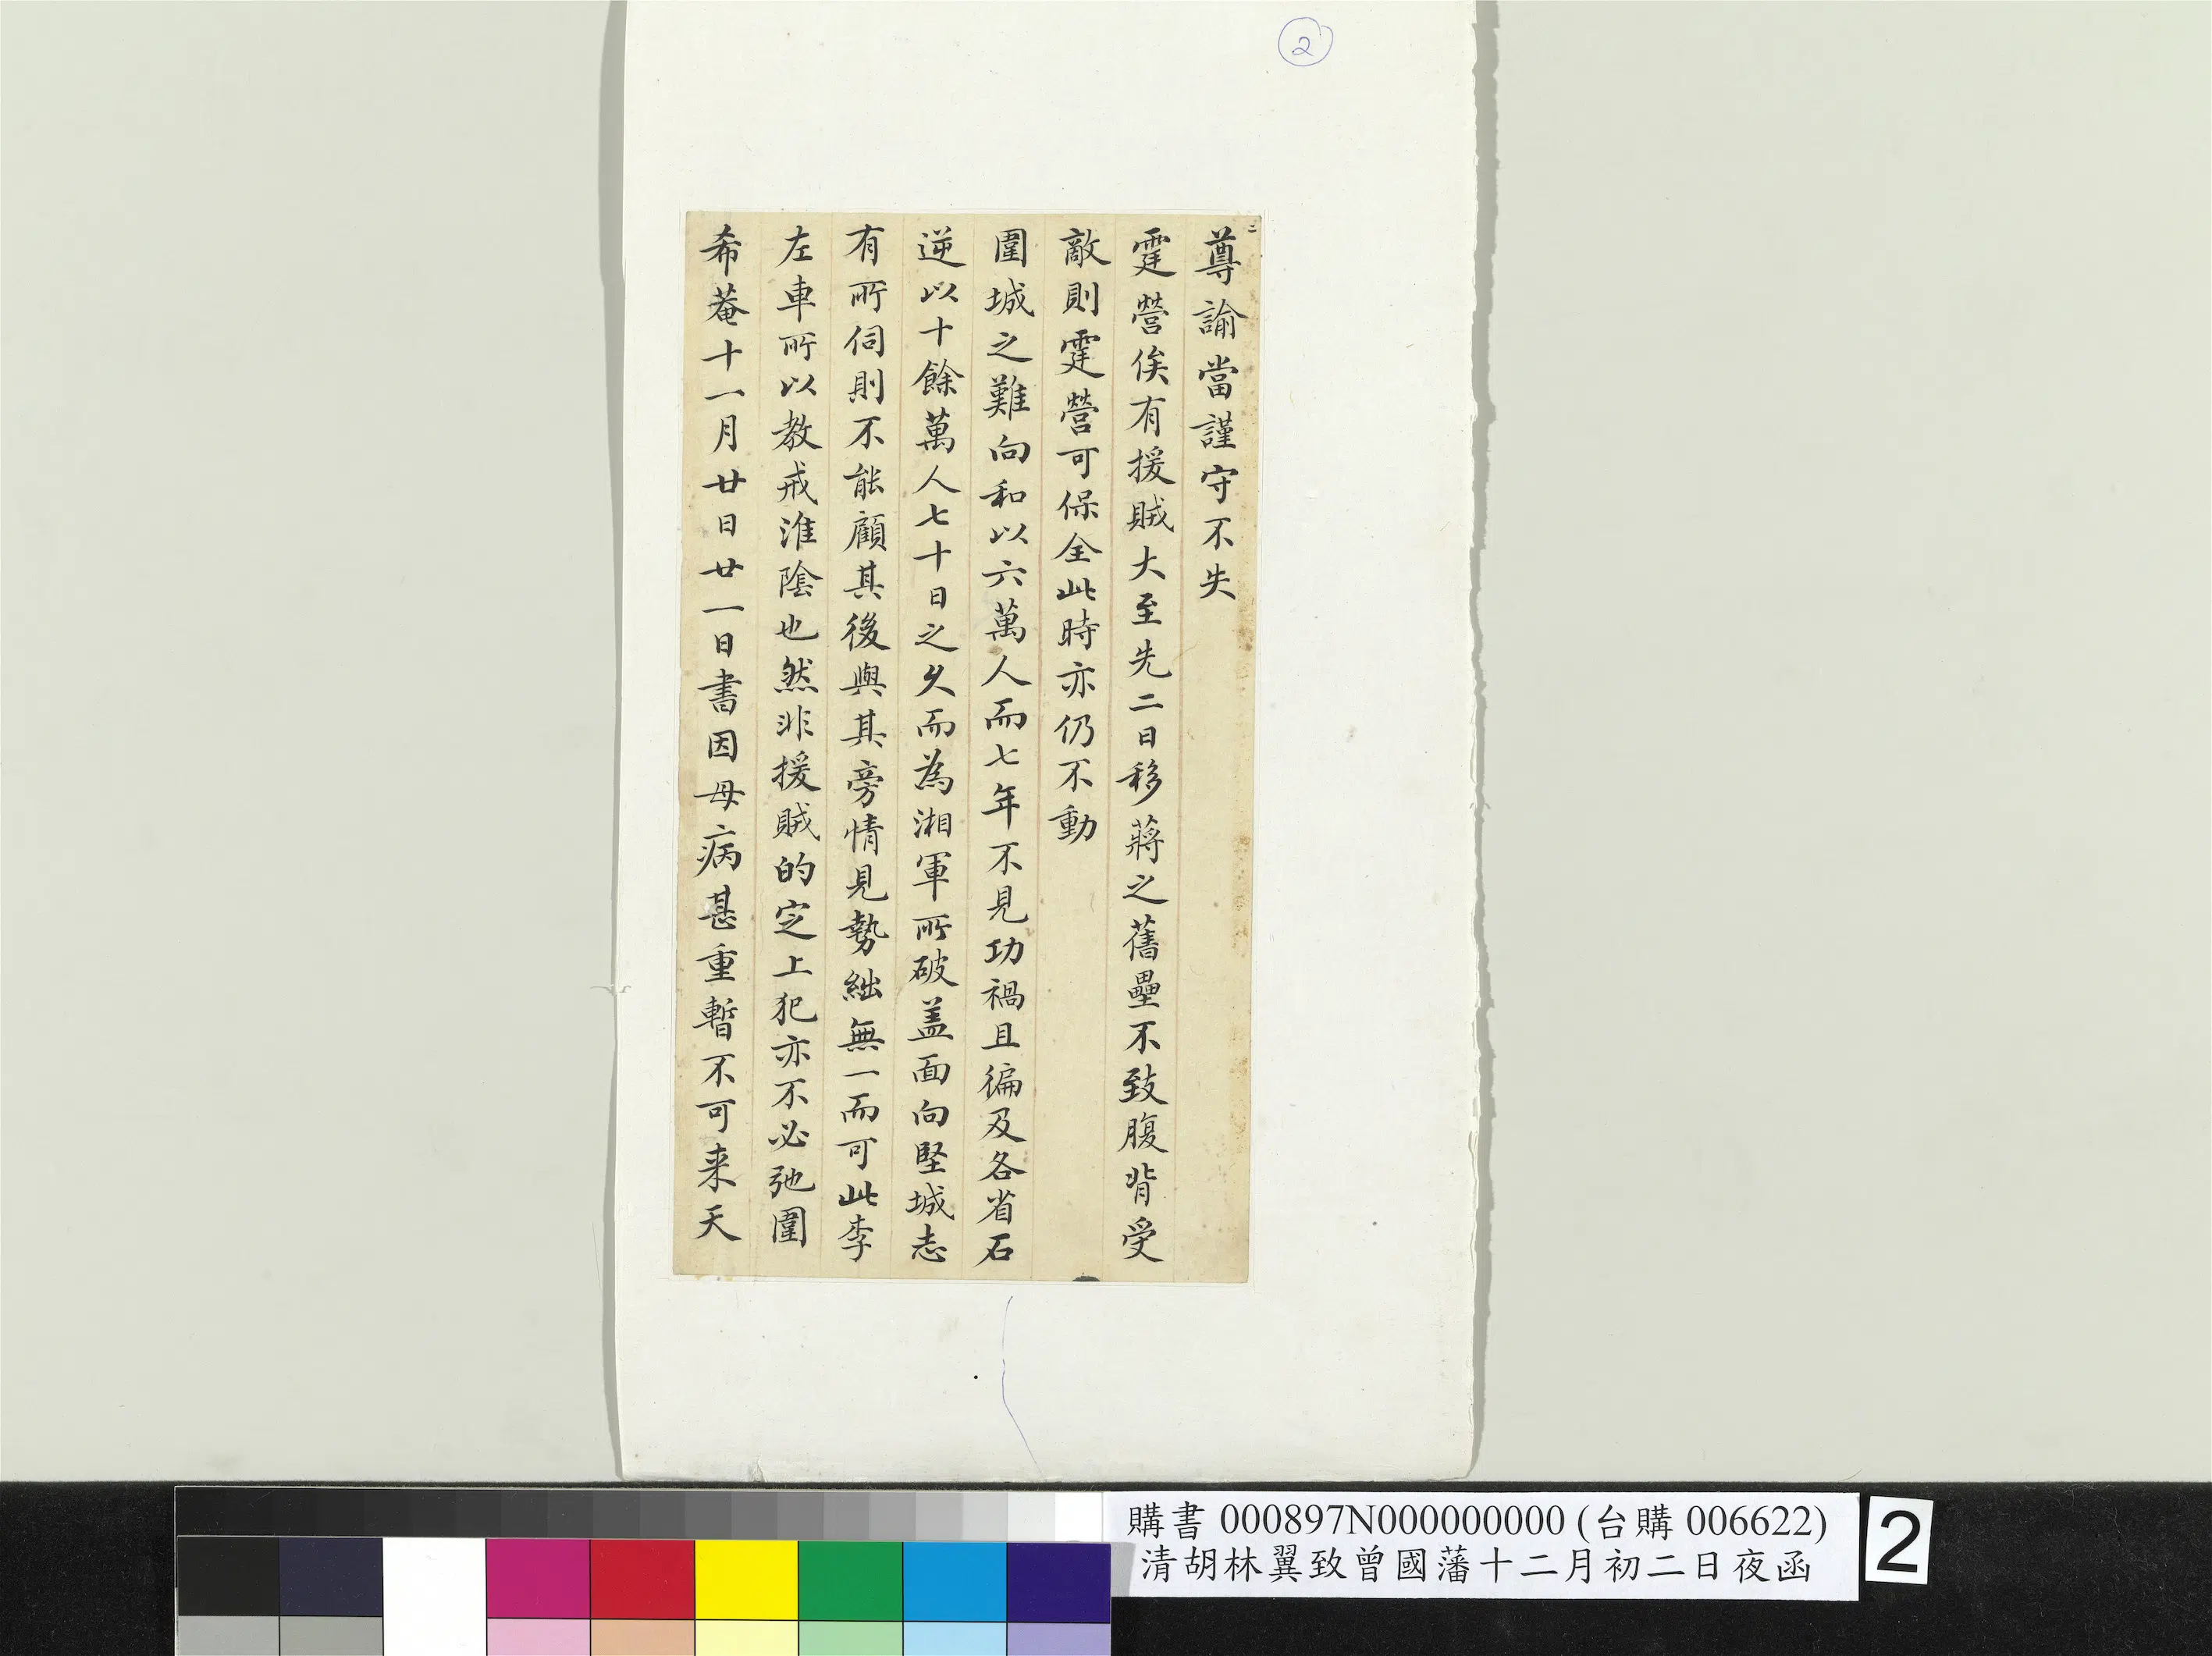 2
二
尊諭當謹守不失
霆營俟有援賊大至先二日移蔣之舊壘不致腹背受
敵則霆營可保全此時亦仍不動
圍城之難向和以六萬人而七年不見功禍且徧及各省石
逆以十餘萬人七十日之久而為湘軍所破盖面向堅城志
有所伺則不能顧其後與其旁情見勢絀無一而可此李
左車所以教戒淮陰也然非援賊的定上犯亦不必弛圍
希菴十一月廿日廿一日書因母病甚重暫不可来天
購書 000897N000000000 (台購 006622)
清胡林翼致曾國藩十二月初二日夜函
2